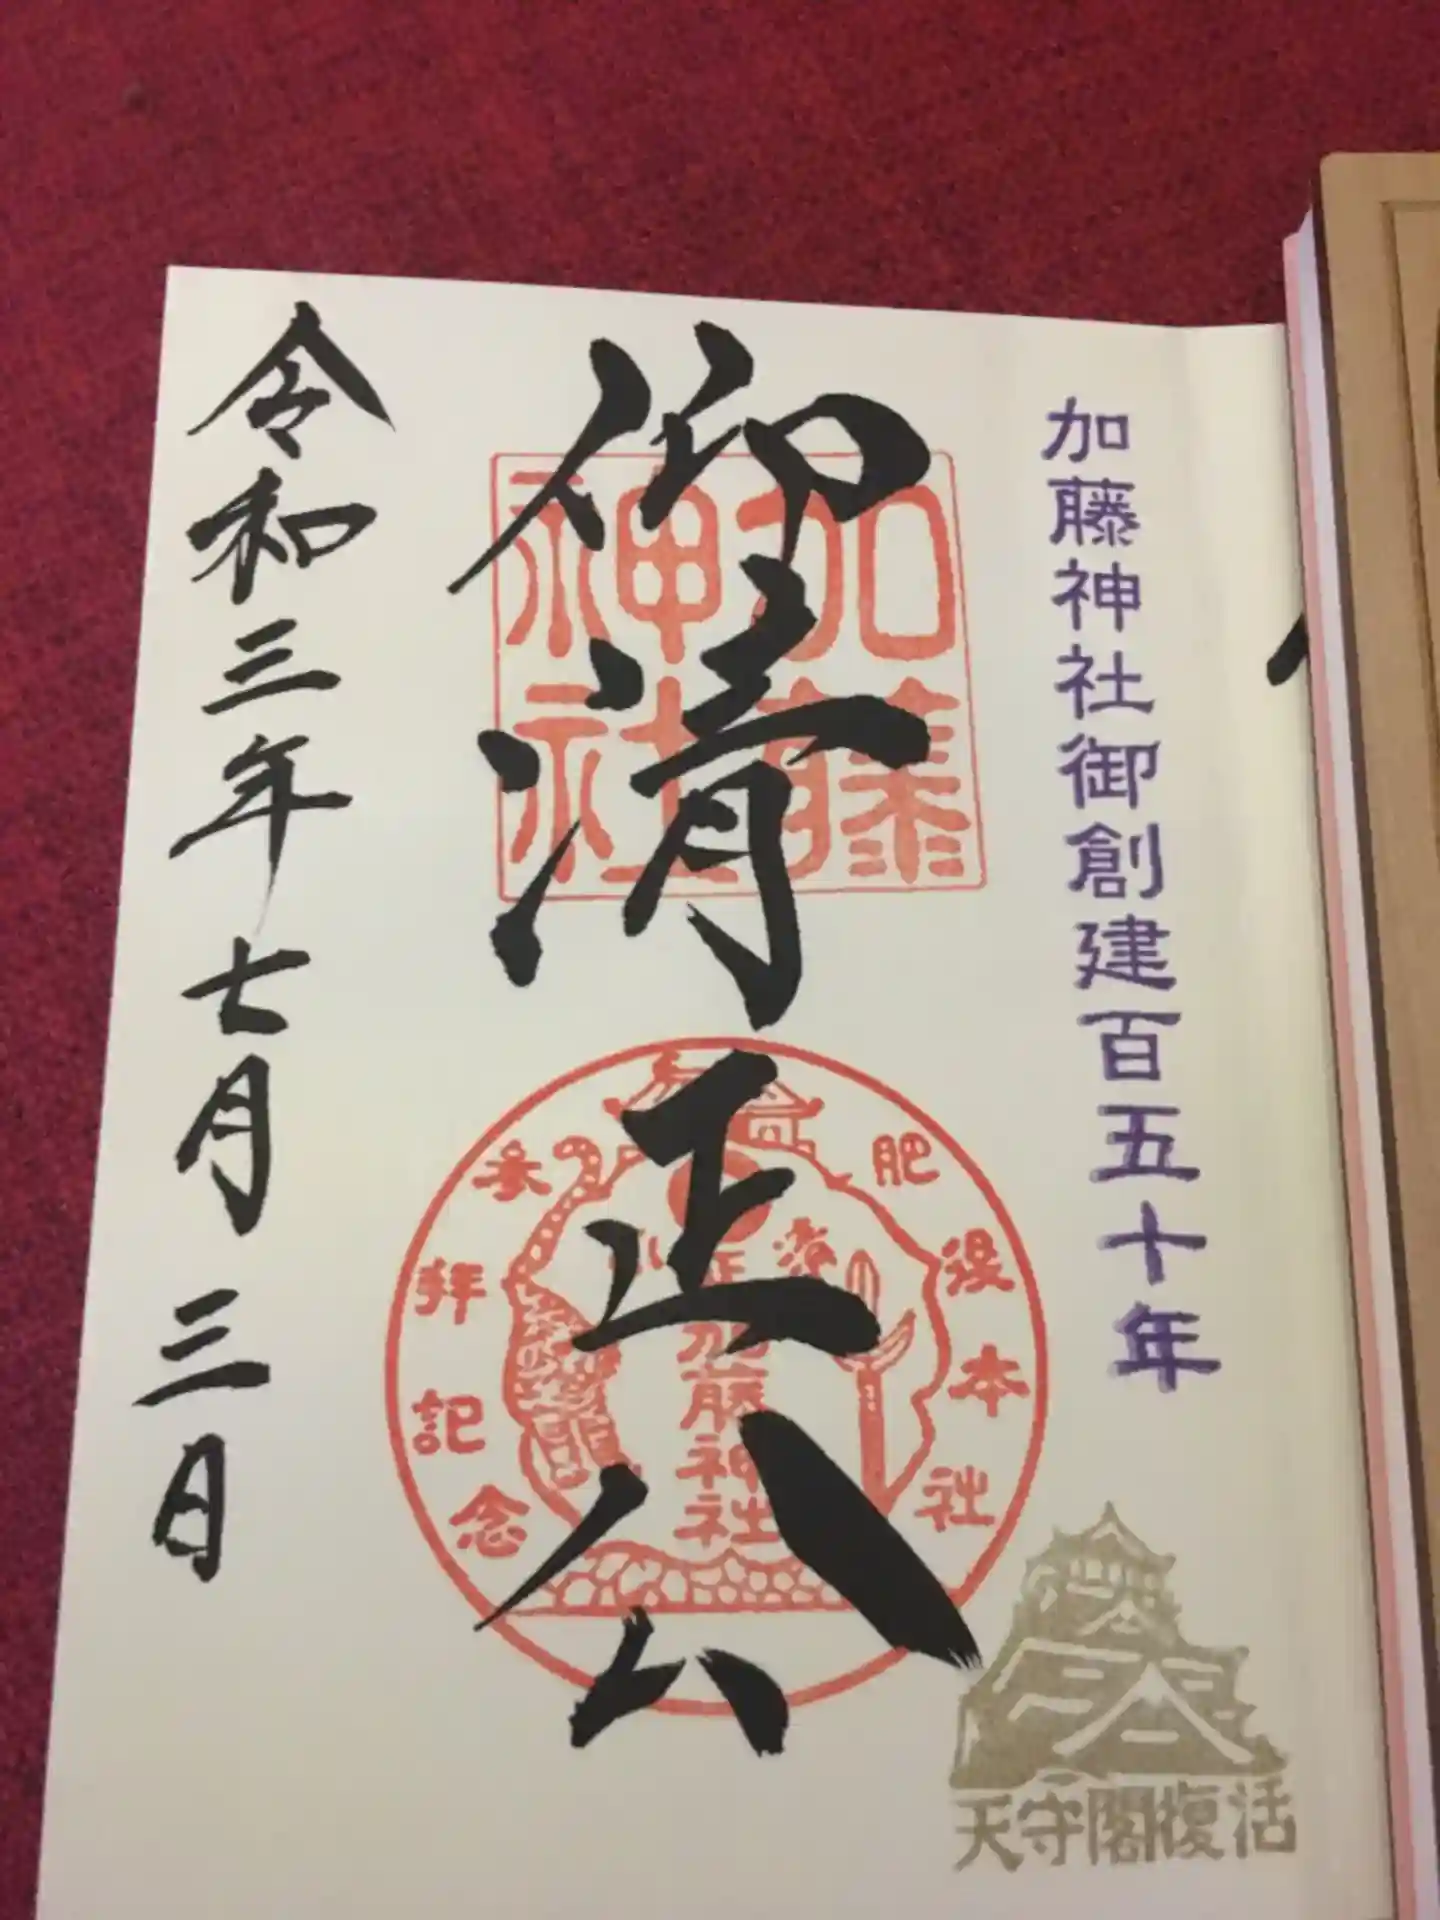 加藤神社御創建百五十年
仰清正公
加藤
神社
肥後本社
参拝記念
清正公
加藤神社
令和三年七月三日
天守閣復活